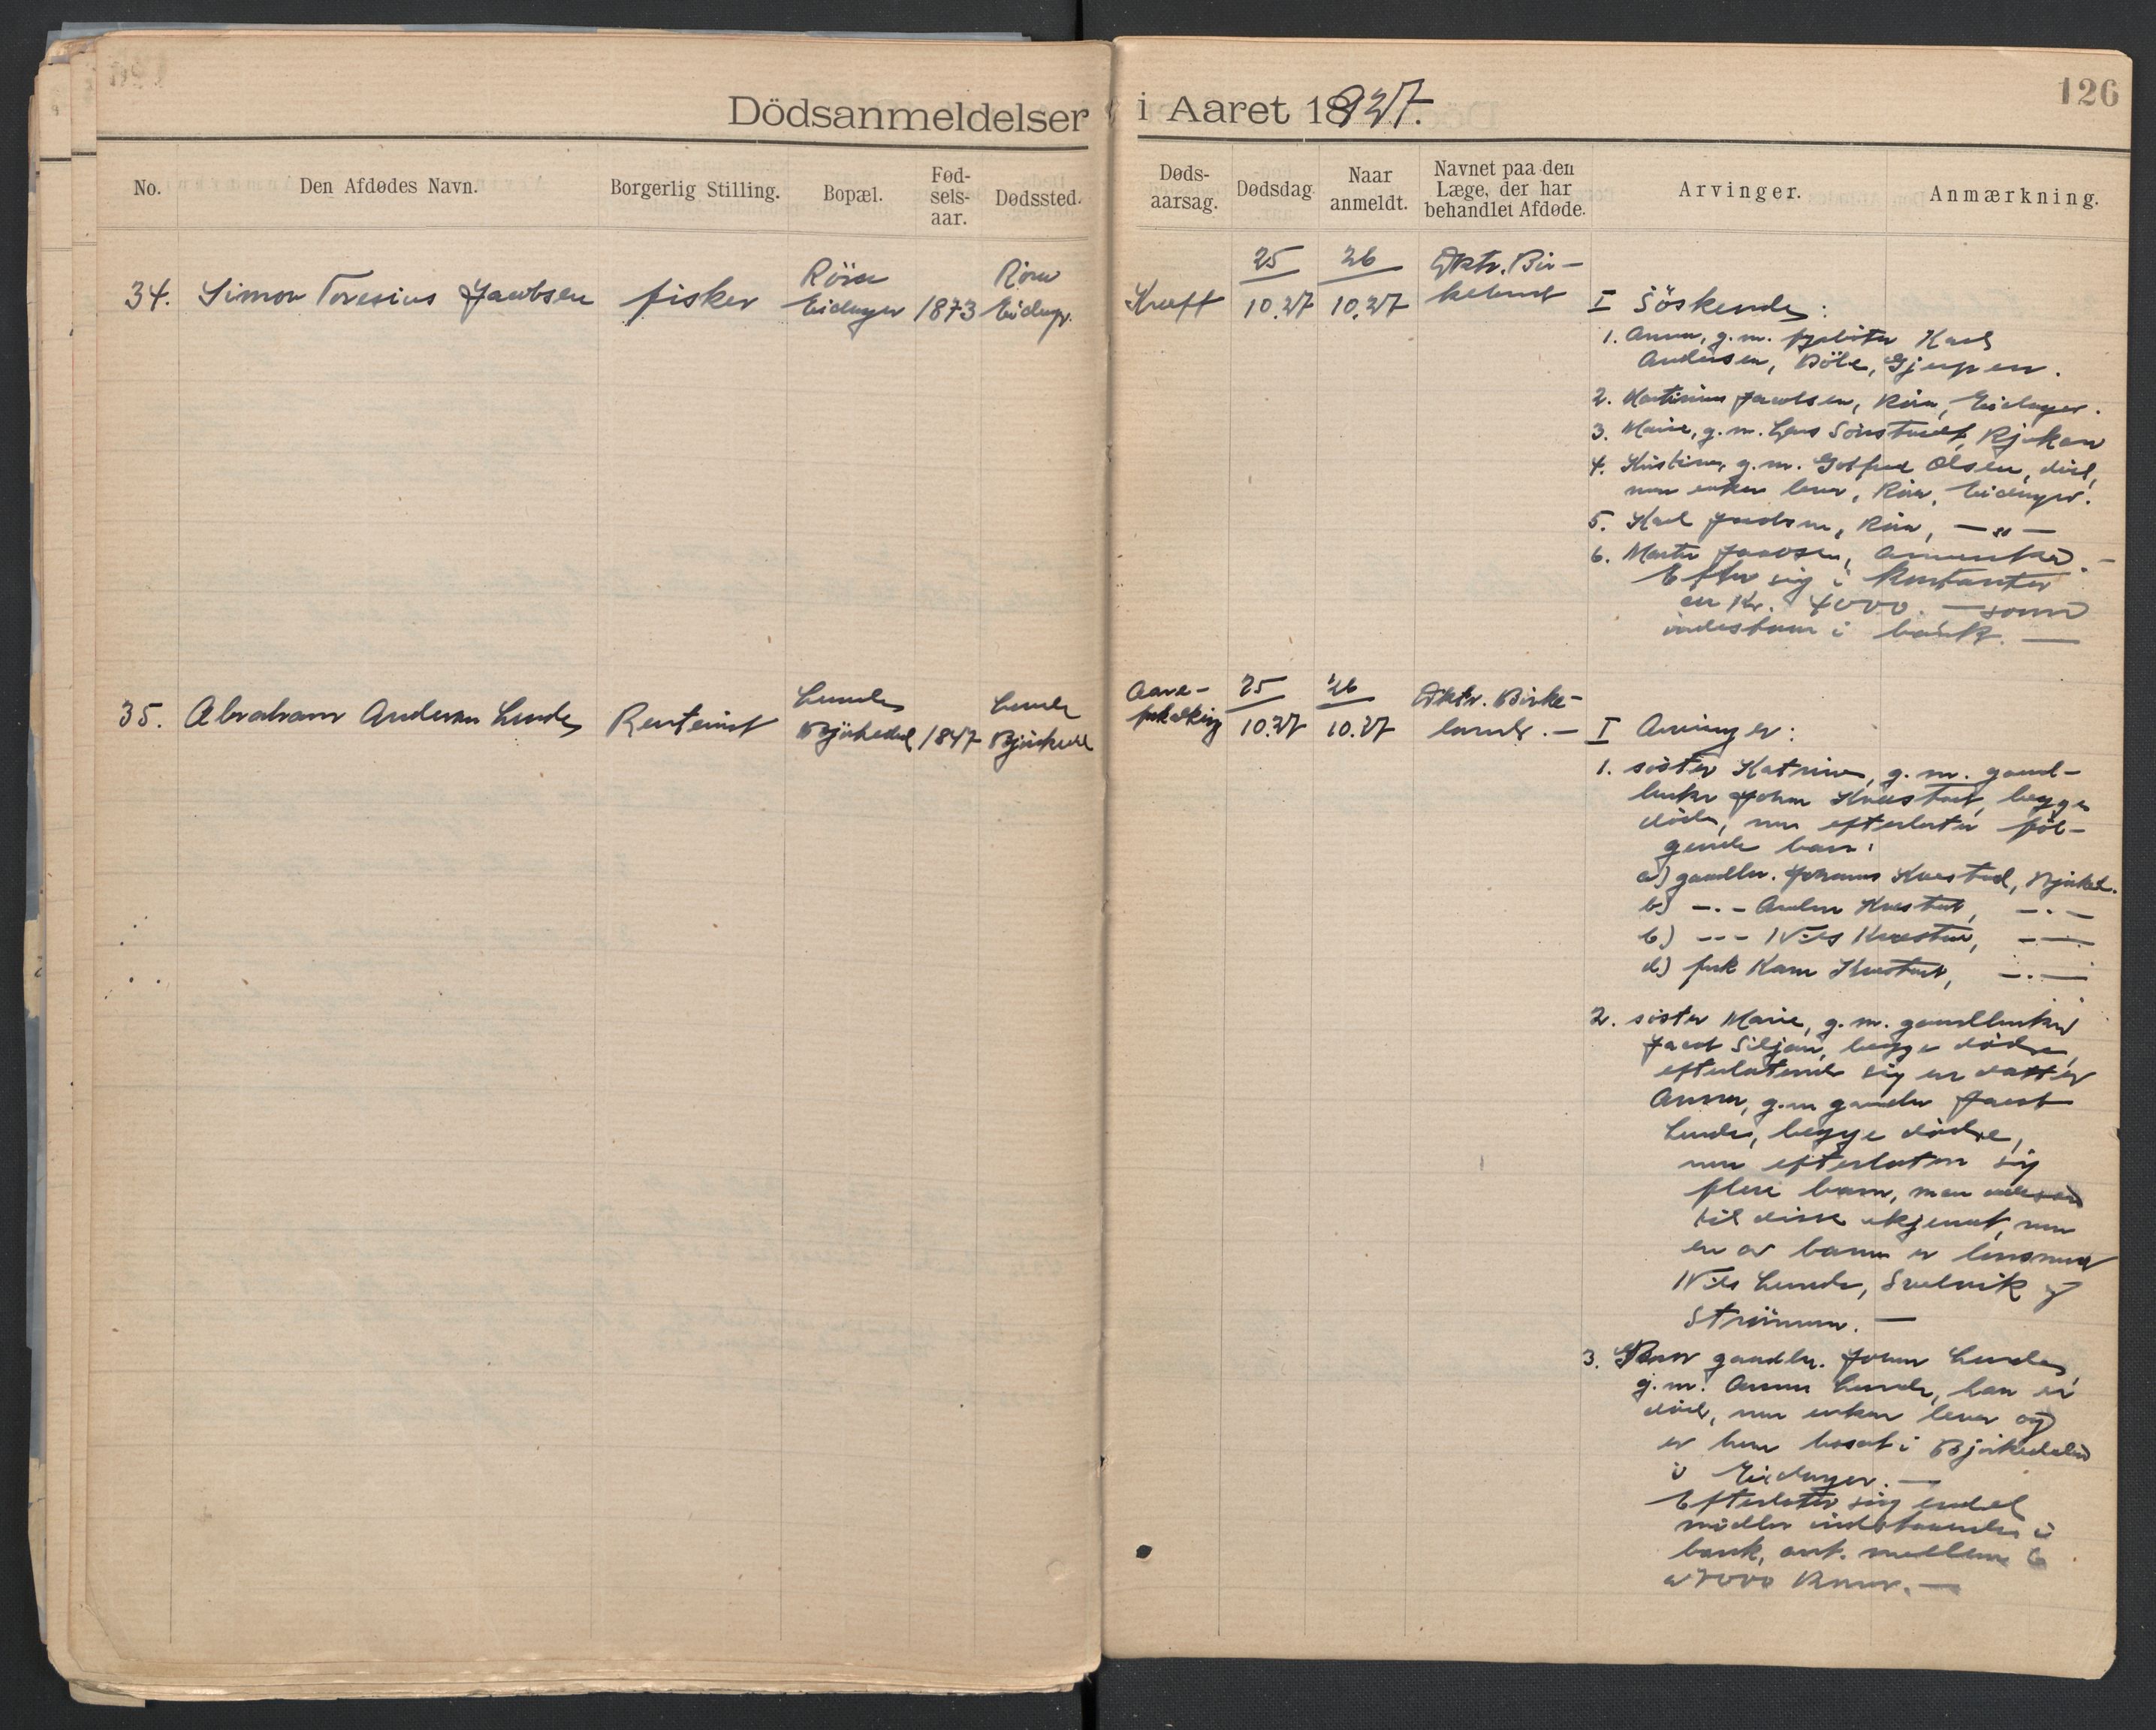 Dödsanmeldelser i Aaret 1927.
126
No.
Den Afdødes Navn.
Borgerlig Stilling.
Bopæl.
Fød-
sels-
aar.
Dødssted.
Døds-
aarsag.
Dødsdag
Naar
anmeldt.
Navnet paa den
Læge, der har
behandlet Afdøde.
Arvinger.
Anmærkning.
34.
Simon Toresius Jacobsen
fisker
Röra
Eidanger
1873
Röra
Eidang.
Kræft
25
10.27
26
10.27
Dktr. Bir-
keland
I Söskende:
1. Anna, g. m. Karl
Andersen, Böle, Gjerpen.
2. Martinius Jacobsen, Röra, Eidanger.
3. Marie, g. m. Lars Rjukan
4. Kristine, g. m. Gotfred Olsen, död,
men enken lever, Röra, Eidanger.
5. Karl Jacobsen, Röra, — " —
6. Martin Jacobsen, Amerika. —
Efter sig i kontanter
en Kr. 4000. — som
indestaar i bank. —
35.
Abraham Andersen Lunde
Rentenist
Lunde
Björkedal
1847
Lunde
Björkedal
Aare-
forkalkning
25
10.27
26
10.27
Dktr. Birke-
land. —
I Arvinger:
1. söster Katrine, g. m. gaard-
bruker Johan Kvestad, begge
döde, men efterlater föl-
gende barn:
a) gaardbr. Johannes Kvestad, Björked.
b) -.- Anders Kvestad, -.-
c) -.- Nils Kvestad, -.-
d) frk Karen Kvestad, -.-
2. söster Marie, g. m. gaardbruker
Jacob Siljan, begge döde,
efterlatende sig en datter
Anna, g. m gaardbr Jacob
Lunde, begge döde,
men efterlater sig
flere barn, men adressen
til disse ukjendt, men
en av barna er lensmand
Nils Lunde, Svelvik og
Strömmen. —
3. Bror gaardbr. Johan Lunde,
g. m. Anna Lunde, han er
död, men enken lever og
er hun bosat i Björkedalen
i Eidanger. —
Efterlater sig endel
midler indestaaende i
bank, ant. mellem 6
a 7000 Kroner. —